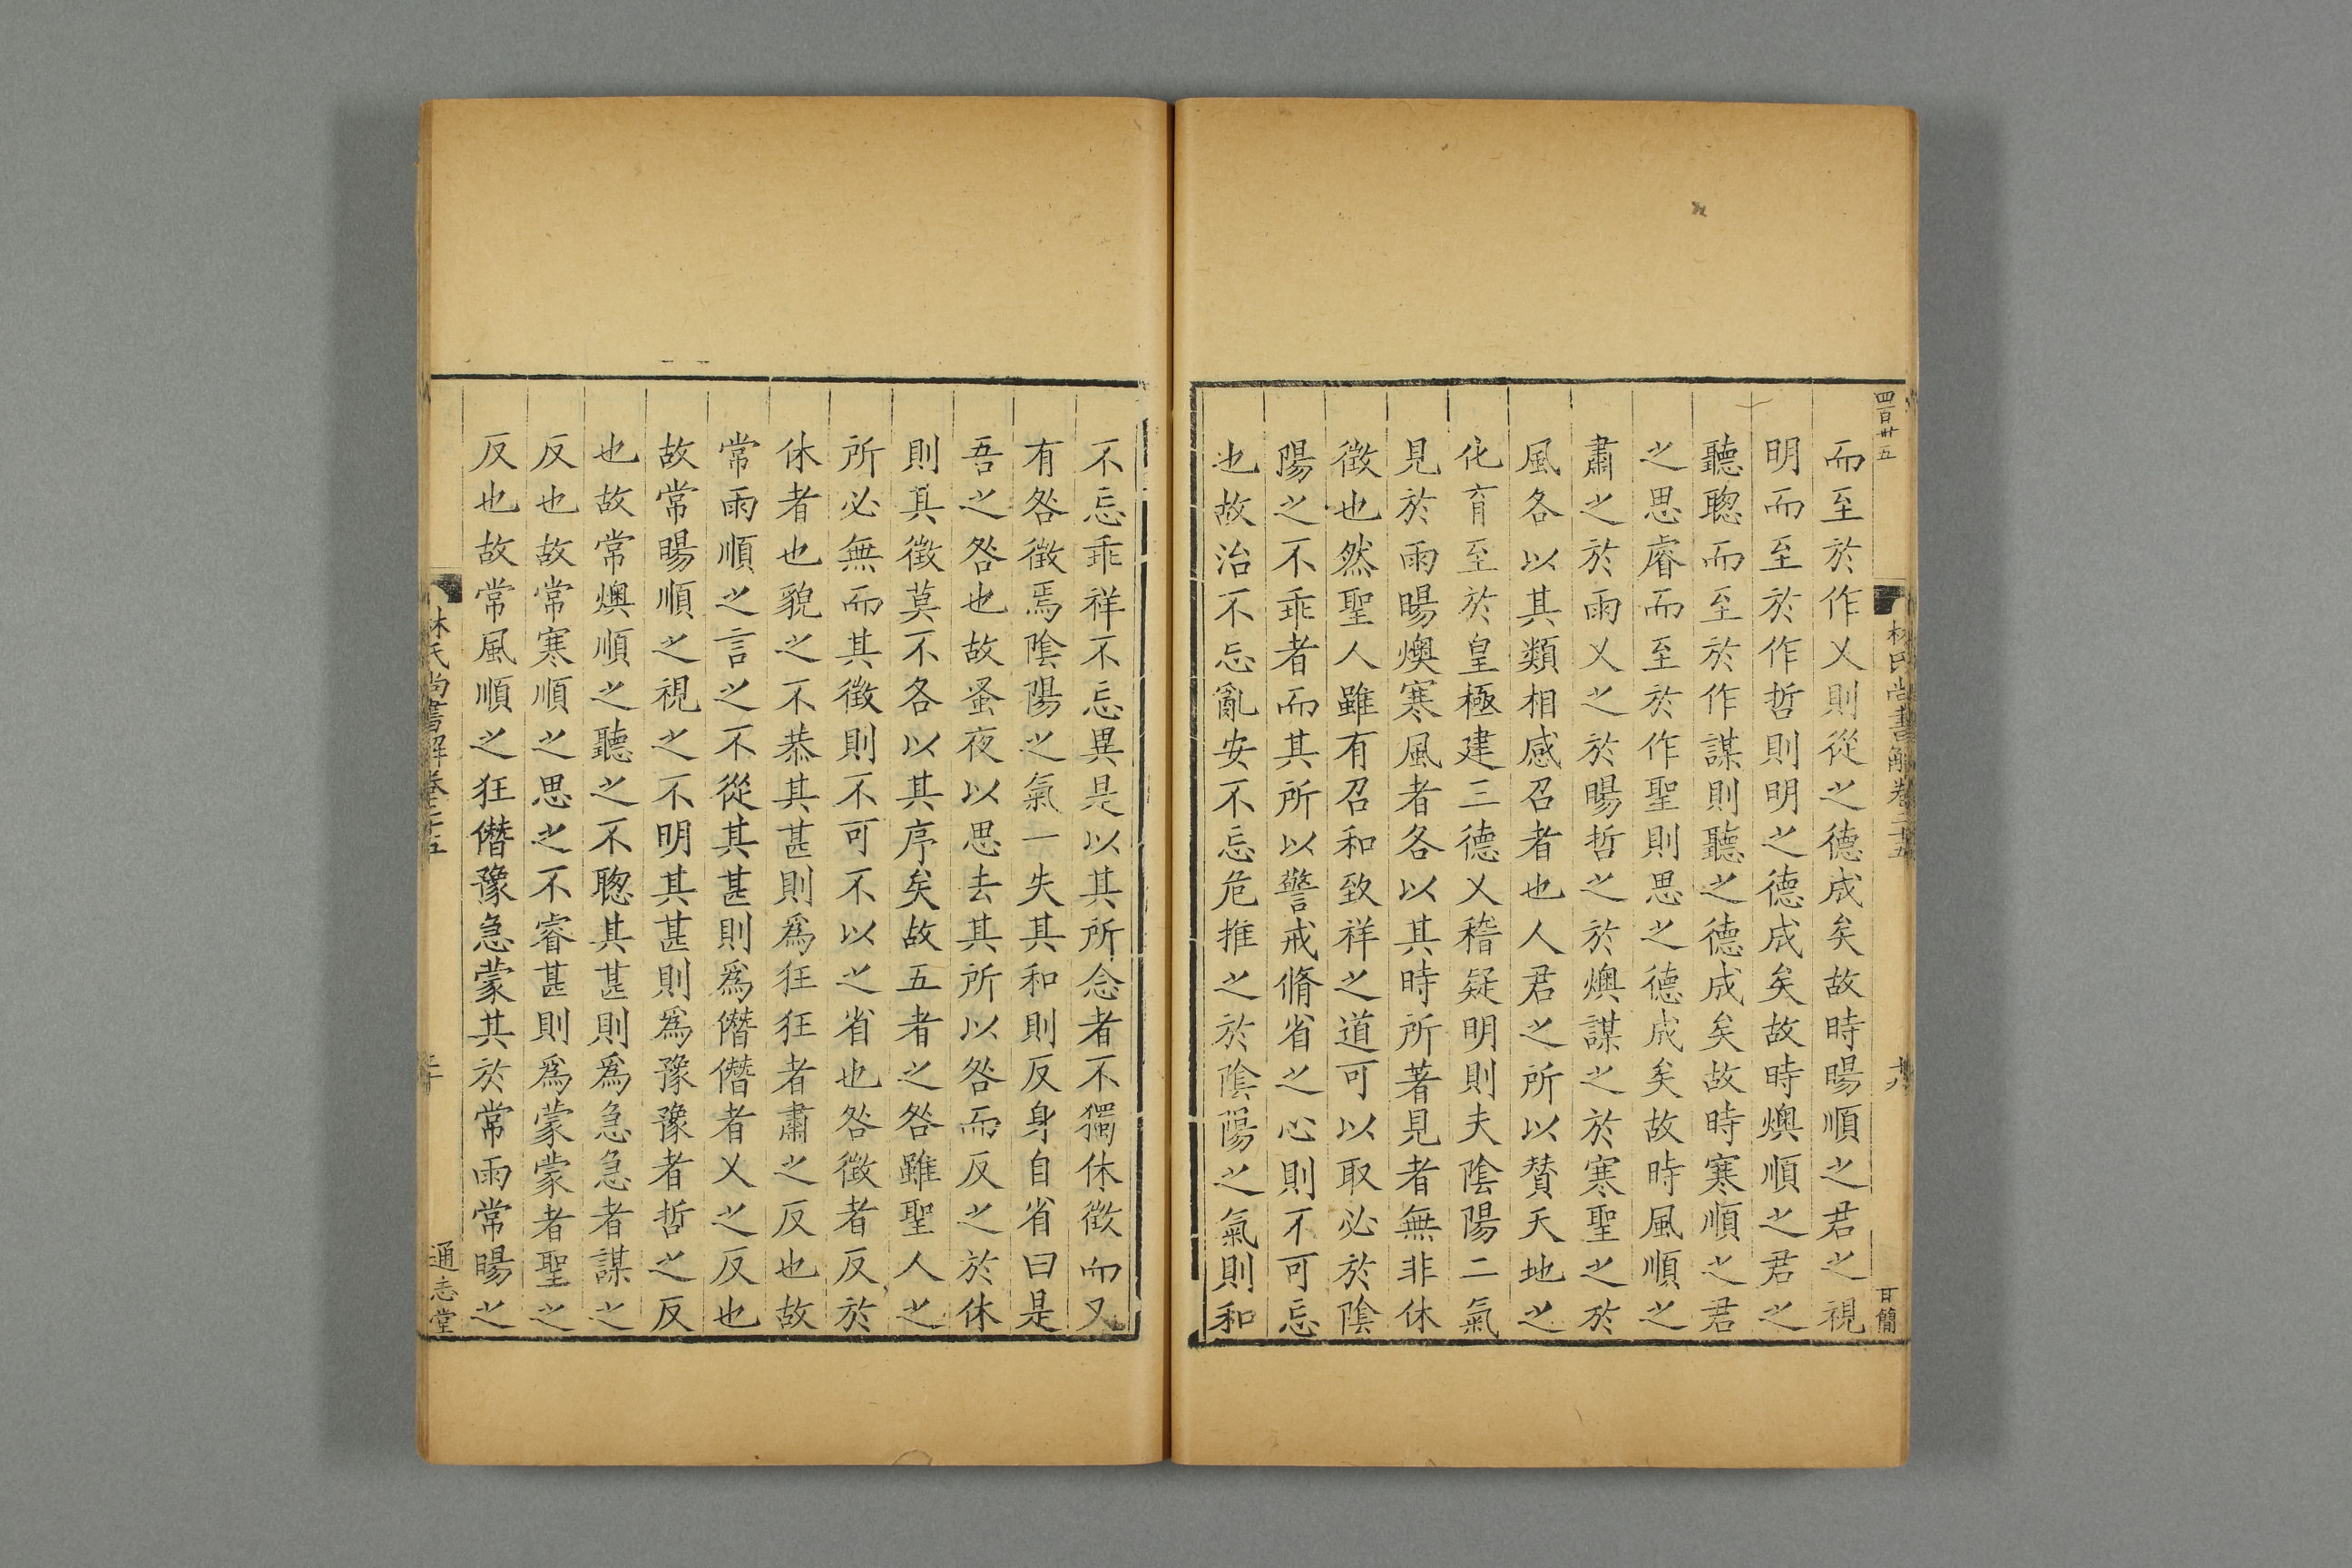 四百卅五
林氏尚書解卷二十五
十九
甘簡
而至於作乂則從之德成矣故時暘順之君之視
明而至於作哲則明之德成矣故時燠順之君之
聽聦而至於作謀則聽之德成矣故時寒順之君
之思睿而至於作聖則思之德成矣故時風順之
肅之於雨乂之於暘哲之於燠謀之於寒聖之於
風各以其類相感召者也人君之所以賛天地之
化育至於皇極建三德乂稽疑明則夫陰陽二氣
見於雨暘燠寒風者各以其時所著見者無非休
徵也然聖人雖有召和致祥之道可以取必於陰
陽之不乖者而其所以警戒脩省之心則不可忘
也故治不忘亂安不忘危推之於陰陽之氣則和
不忘乖祥不忘異是以其所念者不獨休徵而又
有咎徵焉陰陽之氣一失其和則反身自省曰是
吾之咎也故蚤夜以思去其所以咎而反之於休
則其徵莫不各以其序矣故五者之咎雖聖人之
所必無而其徵則不可不以之省也咎徵者反於
休者也貌之不恭其甚則爲狂狂者肅之反也故
常雨順之言之不從其甚則爲僭僭者乂之反也
故常暘順之視之不明其甚則爲豫豫者哲之反
也故常燠順之聽之不聦其甚則爲急急者謀之
反也故常寒順之思之不睿甚則爲蒙蒙者聖之
反也故常風順之狂僭豫急蒙其於常雨常暘之
林氏尚書解卷二十五
二十
通志堂